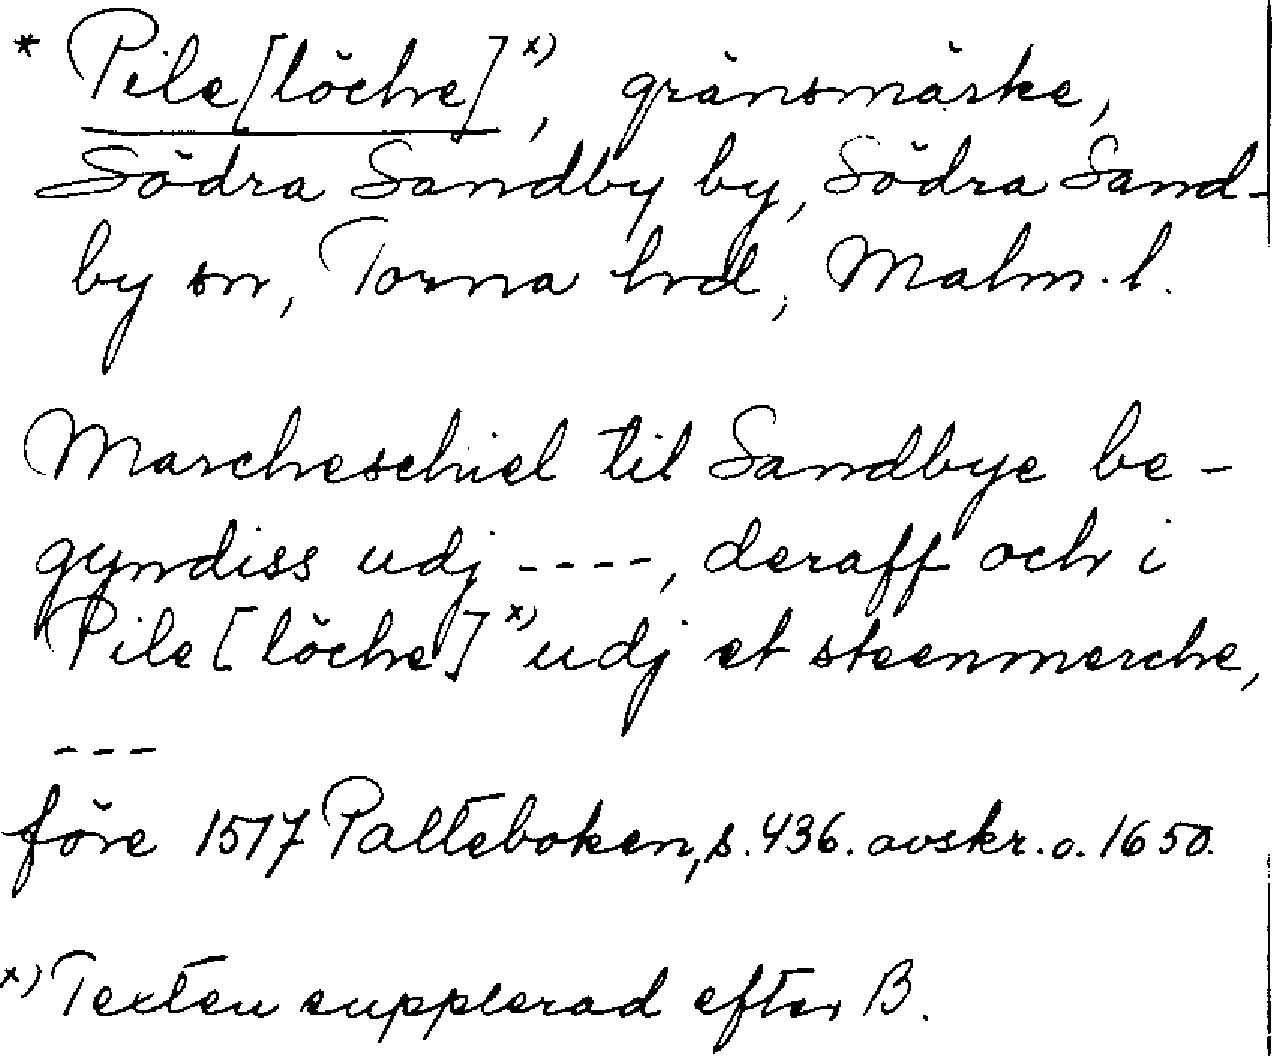 * Pile[löche]x), gränsmärke,
Södra Sandby by, Södra Sand-
by sn, Torna hrd, Malm. l.
Marcheschiel til Sandbye be-
gyndiss udj ----, deraff och i
Pile[löche]x) udj et steenmerche,
---
före 1517 Palteboken, s. 436. avskr. o. 1650.
x) Texten supplerad efter B.